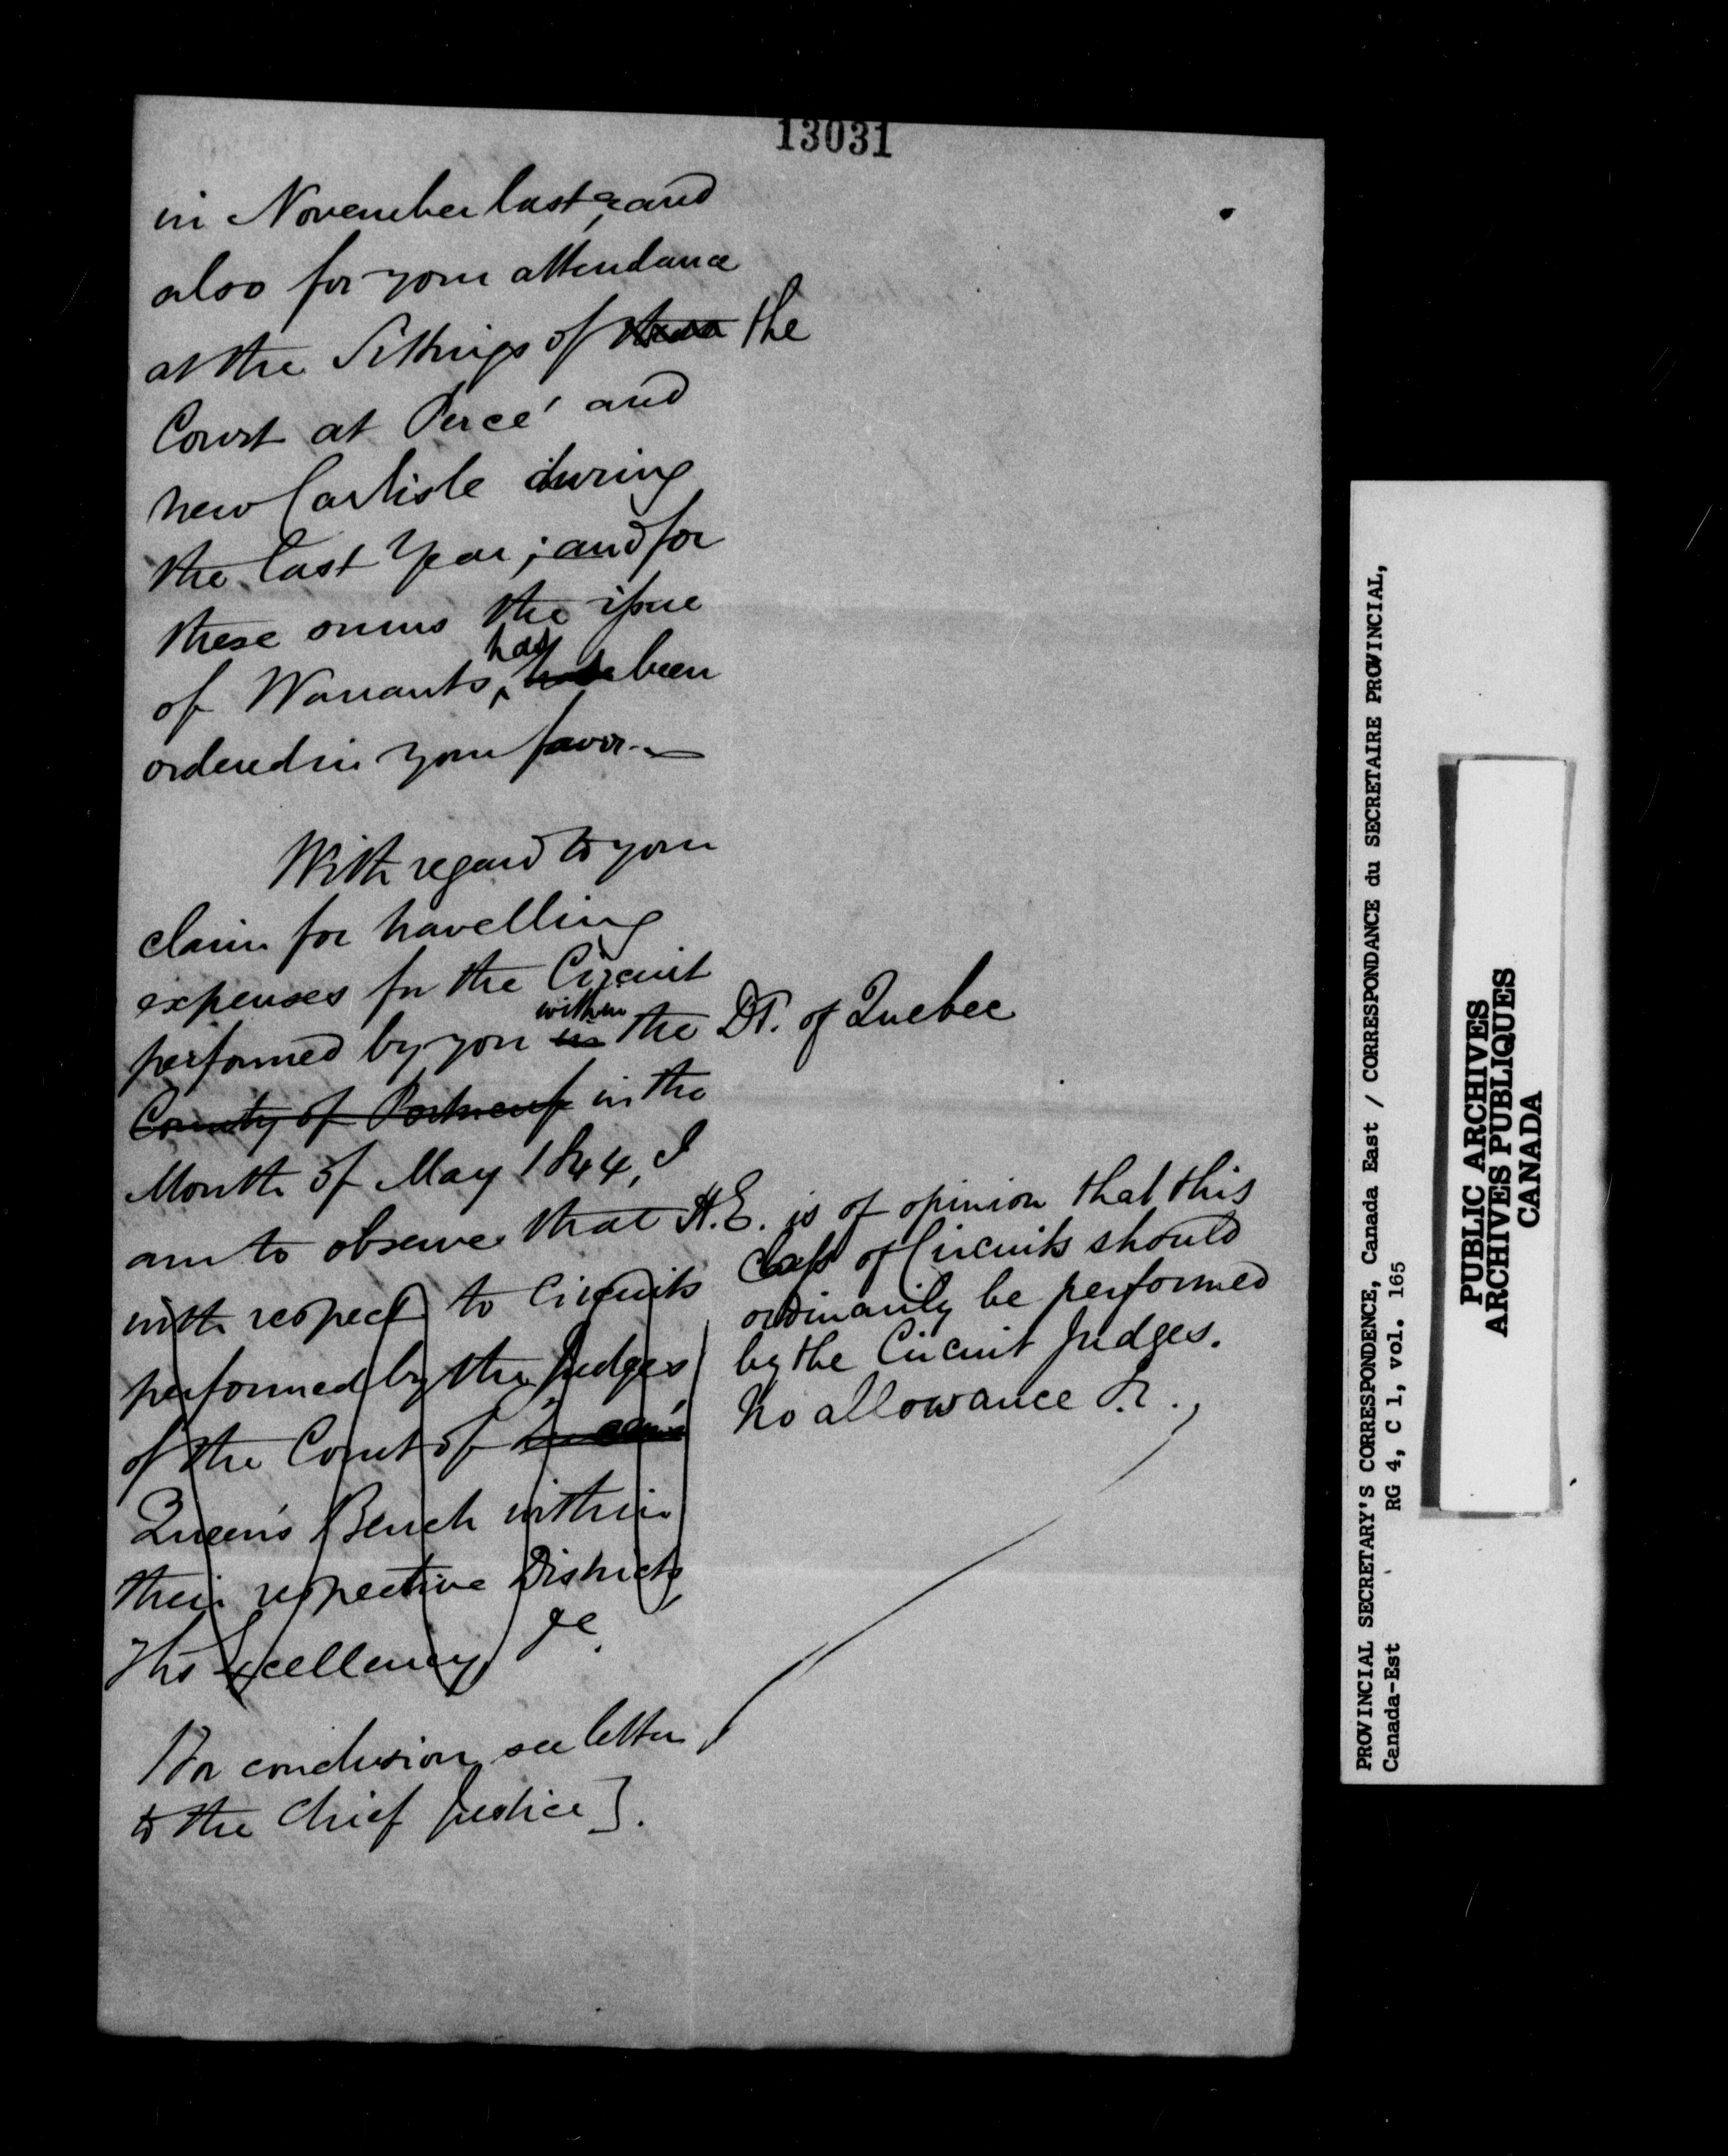 13031
in November last, and
also for your attendance
at the Sittings of the
Court at Percé and
New Carlisle during
the last Year; and for
these sums the issue
of Warrants has have been
ordered in your favor.
With regard to your
claim for travelling
expenses for the Circuit
performed by you in within the Dt. of Quebec
County of Portneuf in the
Month of May 1844, I
am to observe that H.E. is of opinion that this
class of Circuits should
ordinarily be performed
by the Circuit Judges.
No allowance &c.,
with respect to Circuits
performed by the Judges
of the Court of
Queen's Bench within
their respective Districts
His Excellency &c
For conclusion see letter
to the Chief Justice].
PROVINCIAL SECRETARY'S CORRESPONDENCE, Canada East / CORRESPONDANCE du SECRETAIRE PROVINCIAL,
Canada-Est RG 4, C 1, vol. 165
PUBLIC ARCHIVES
ARCHIVES PUBLIQUES
CANADA